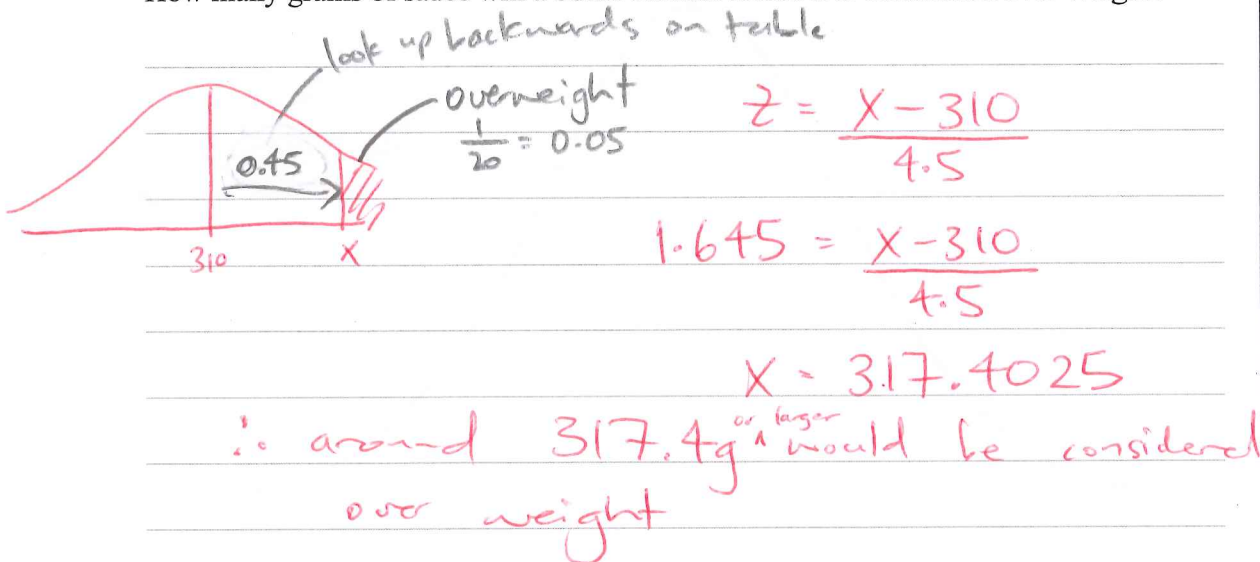 look up backwards on table
overweight
1/20 = 0.05
0.45
310
X
Z = X - 310 / 4.5
1.645 = X - 310 / 4.5
X = 317.4025
∴ around 317.4g or larger ^ would be considered
over weight